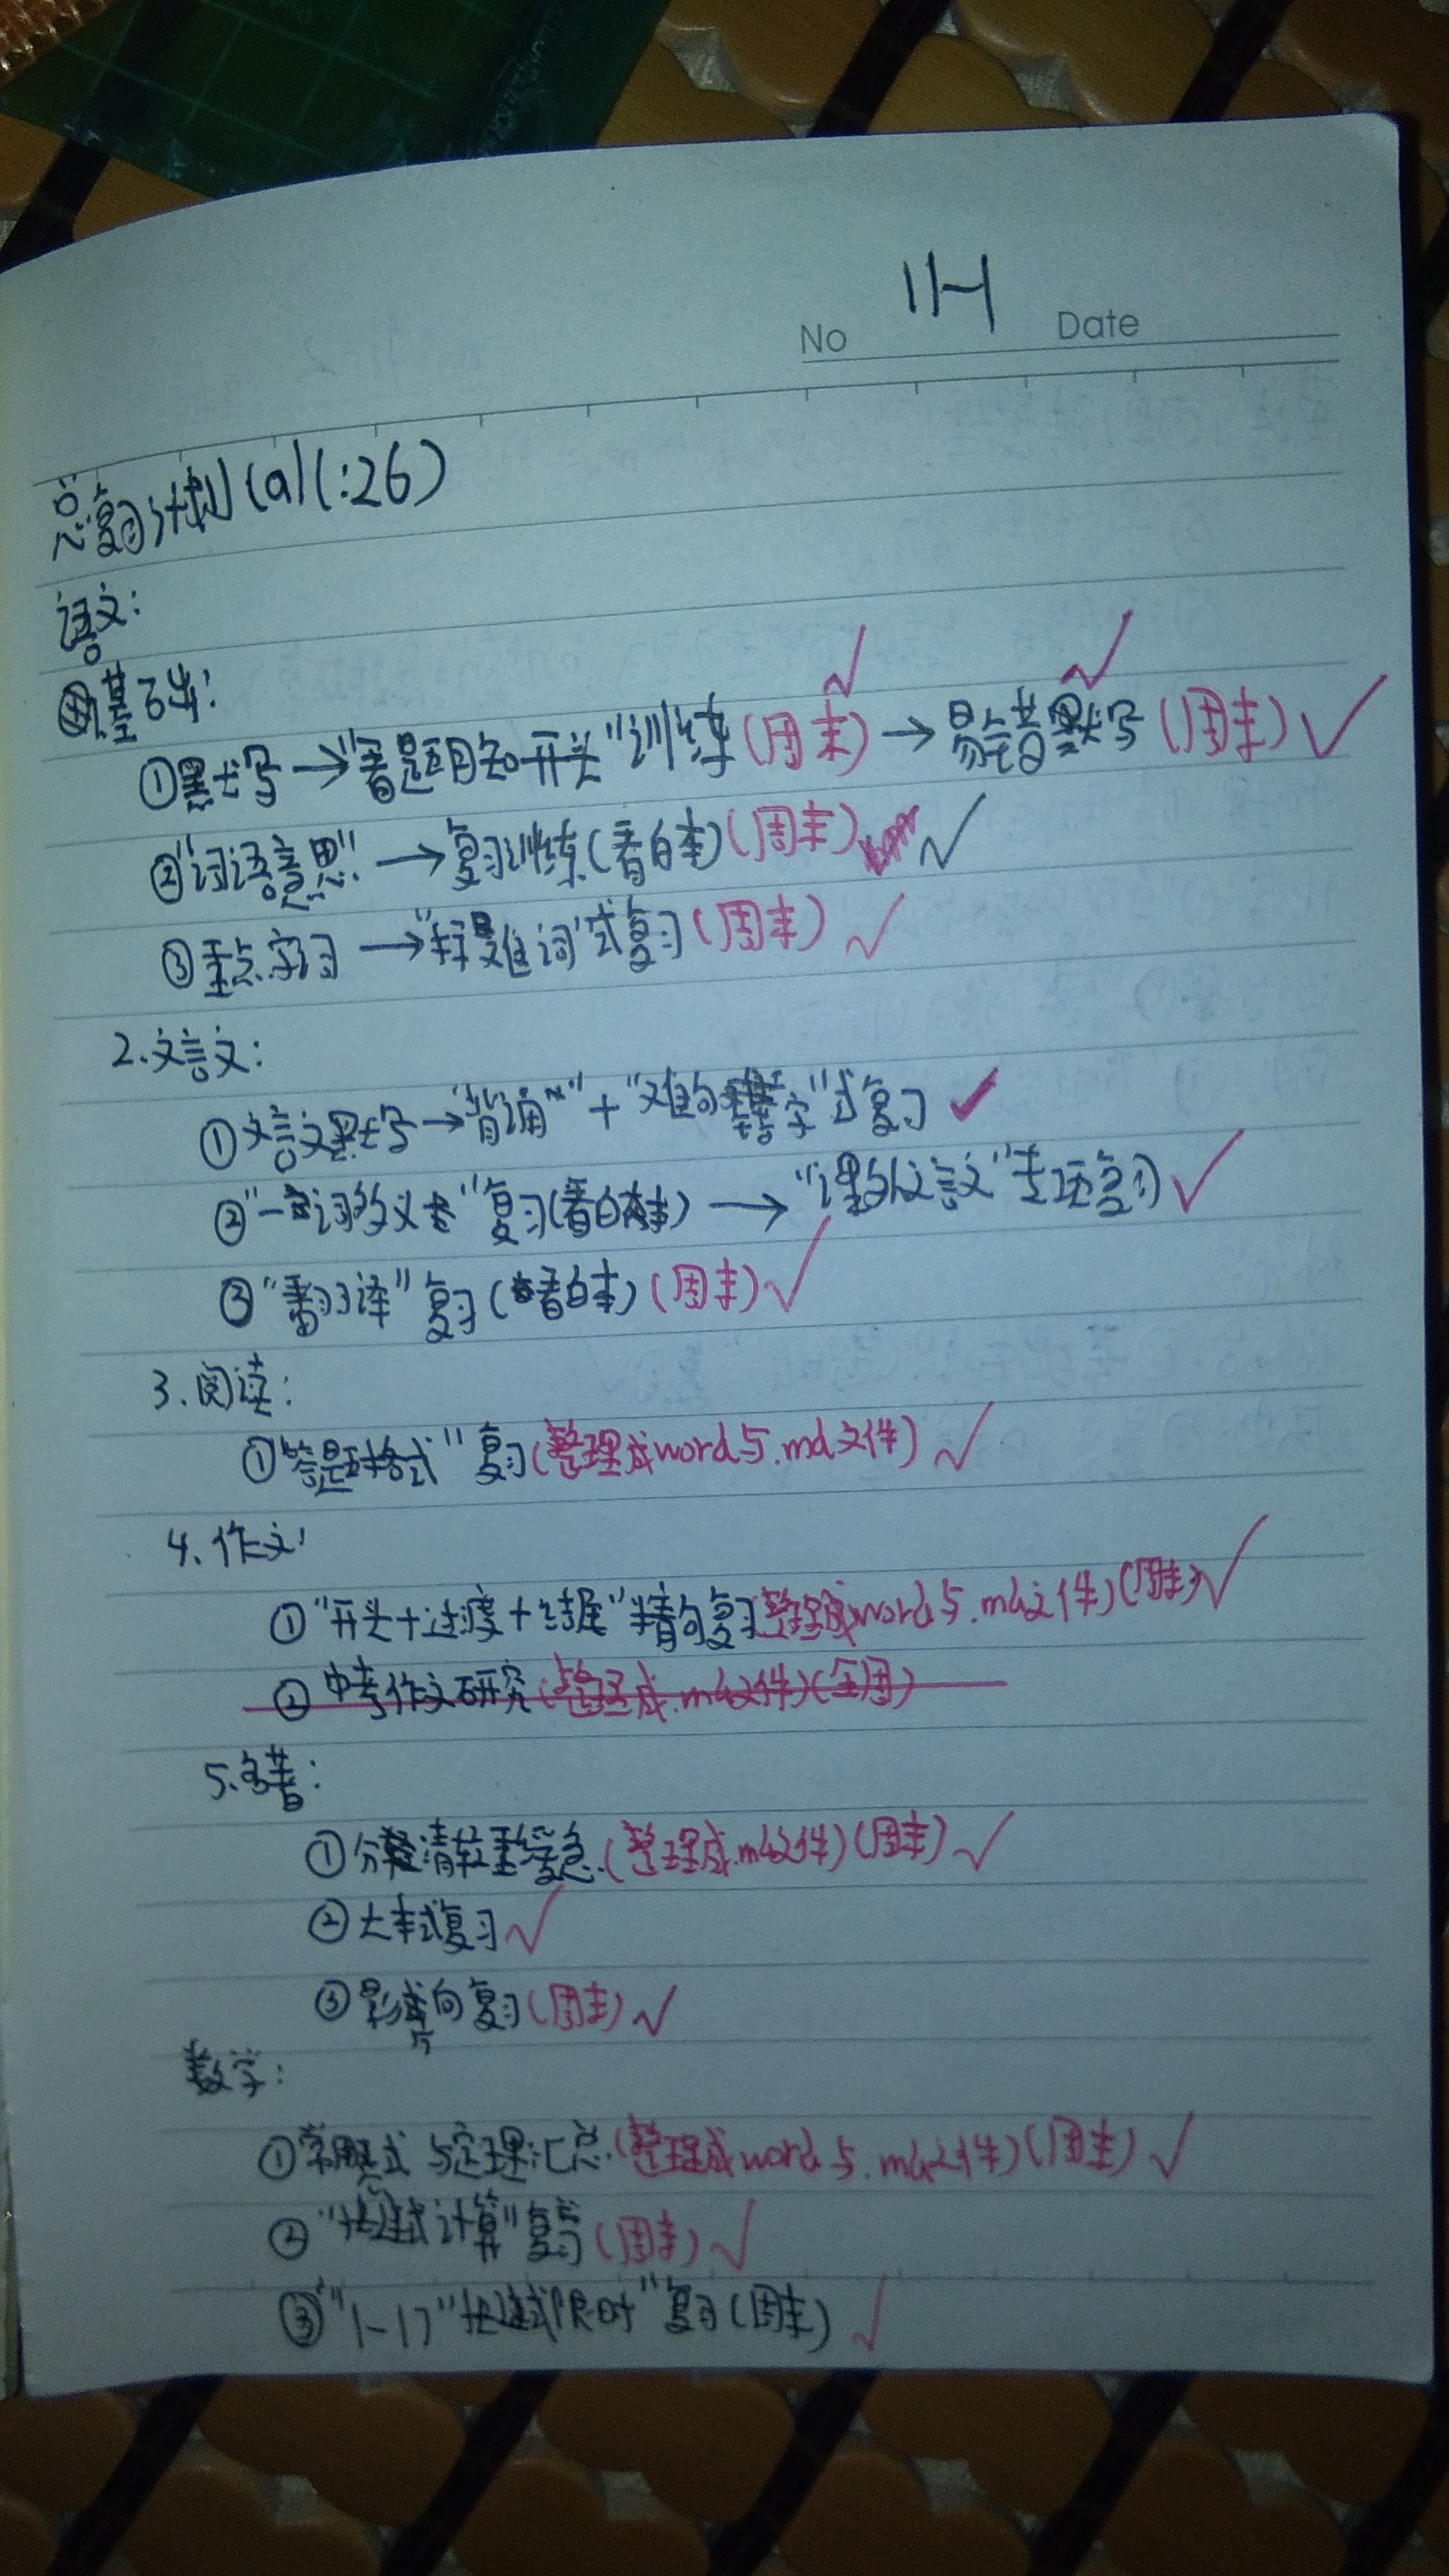 No 11-1 Date
总复习计划(a11:26)
语文:
基础:
①默写→"看题目知开头"训练(周末)→易错默写(周末)
②"词语意思"→复习训练(看白本)(周末)
③重点字词→"择难词"式复习(周末)
2.文言文:
①文言文默写→"背诵"+"难句难字"式复习
②"一词多义"复习(看白本)→"课外文言文"专项复习
③"翻译"复习(看白本)(周末)
3.阅读:
①"答题格式"复习(整理成word与.md文件)
4.作文:
①"开头+过渡+结尾"精句复习(整理成word与.md文件)(周末)
②中考作文研究(整理成.md文件)(全周)
5.名著:
①分清轻重缓急(整理成.md文件)(周末)
②大本式复习
③影响复习(周末)
数学:
①常用公式与定理汇总(整理成word与.md文件)(周末)
②"快速式计算"复习(周末)
③"1-17"快速式限时"复习(周末)